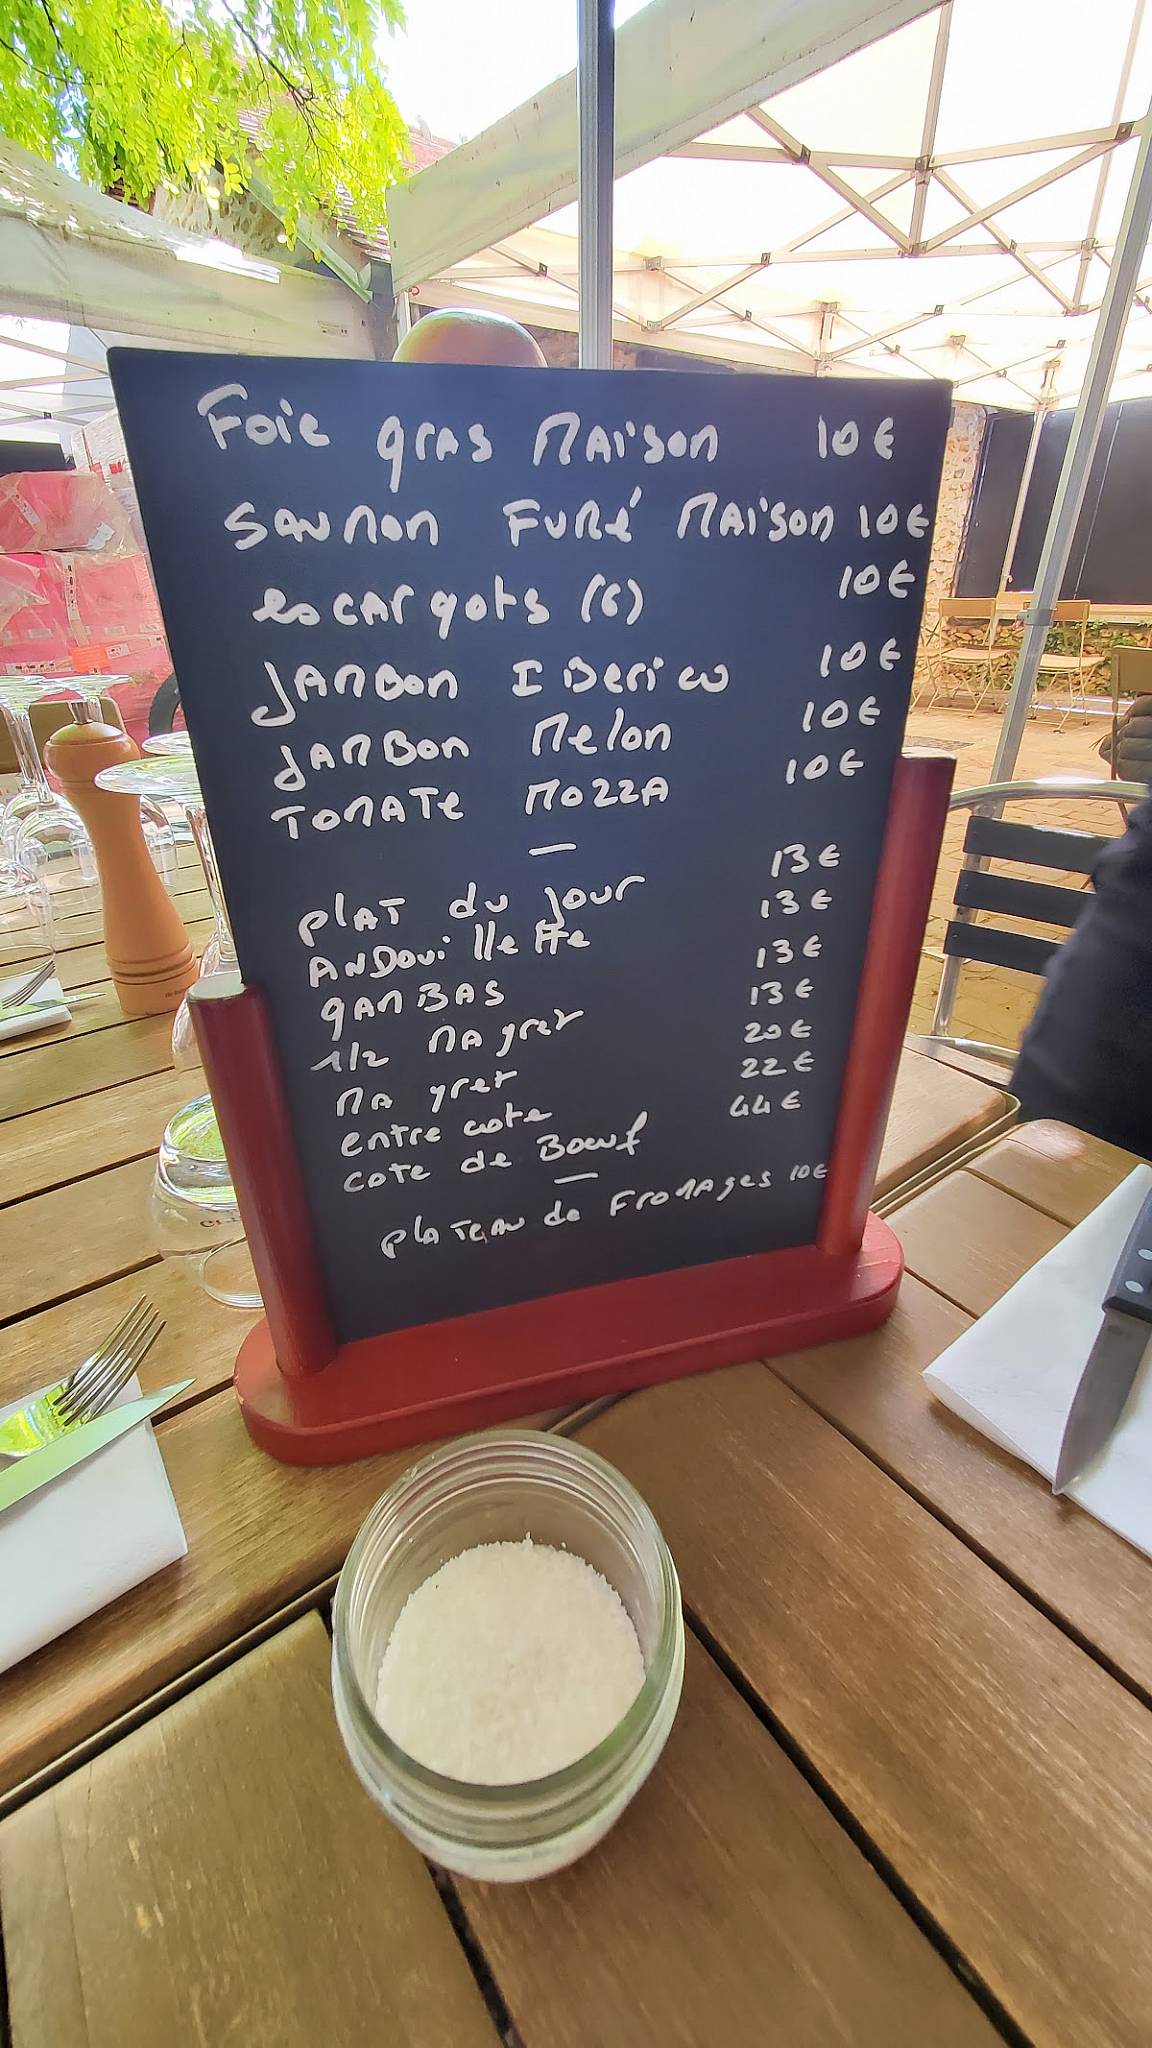 Foie gras Maison 10€
Saumon Fumé Maison 10€
escargots (6) 10€
Jambon Iberico 10€
Jambon Melon 10€
Tomate Mozza 10€
—
plat du jour 13€
Andouillette 13€
gambas 13€
1/2 Magret 13€
Magret 20€
entrecote 22€
cote de Boeuf 44€
—
plateau de Fromages 10€